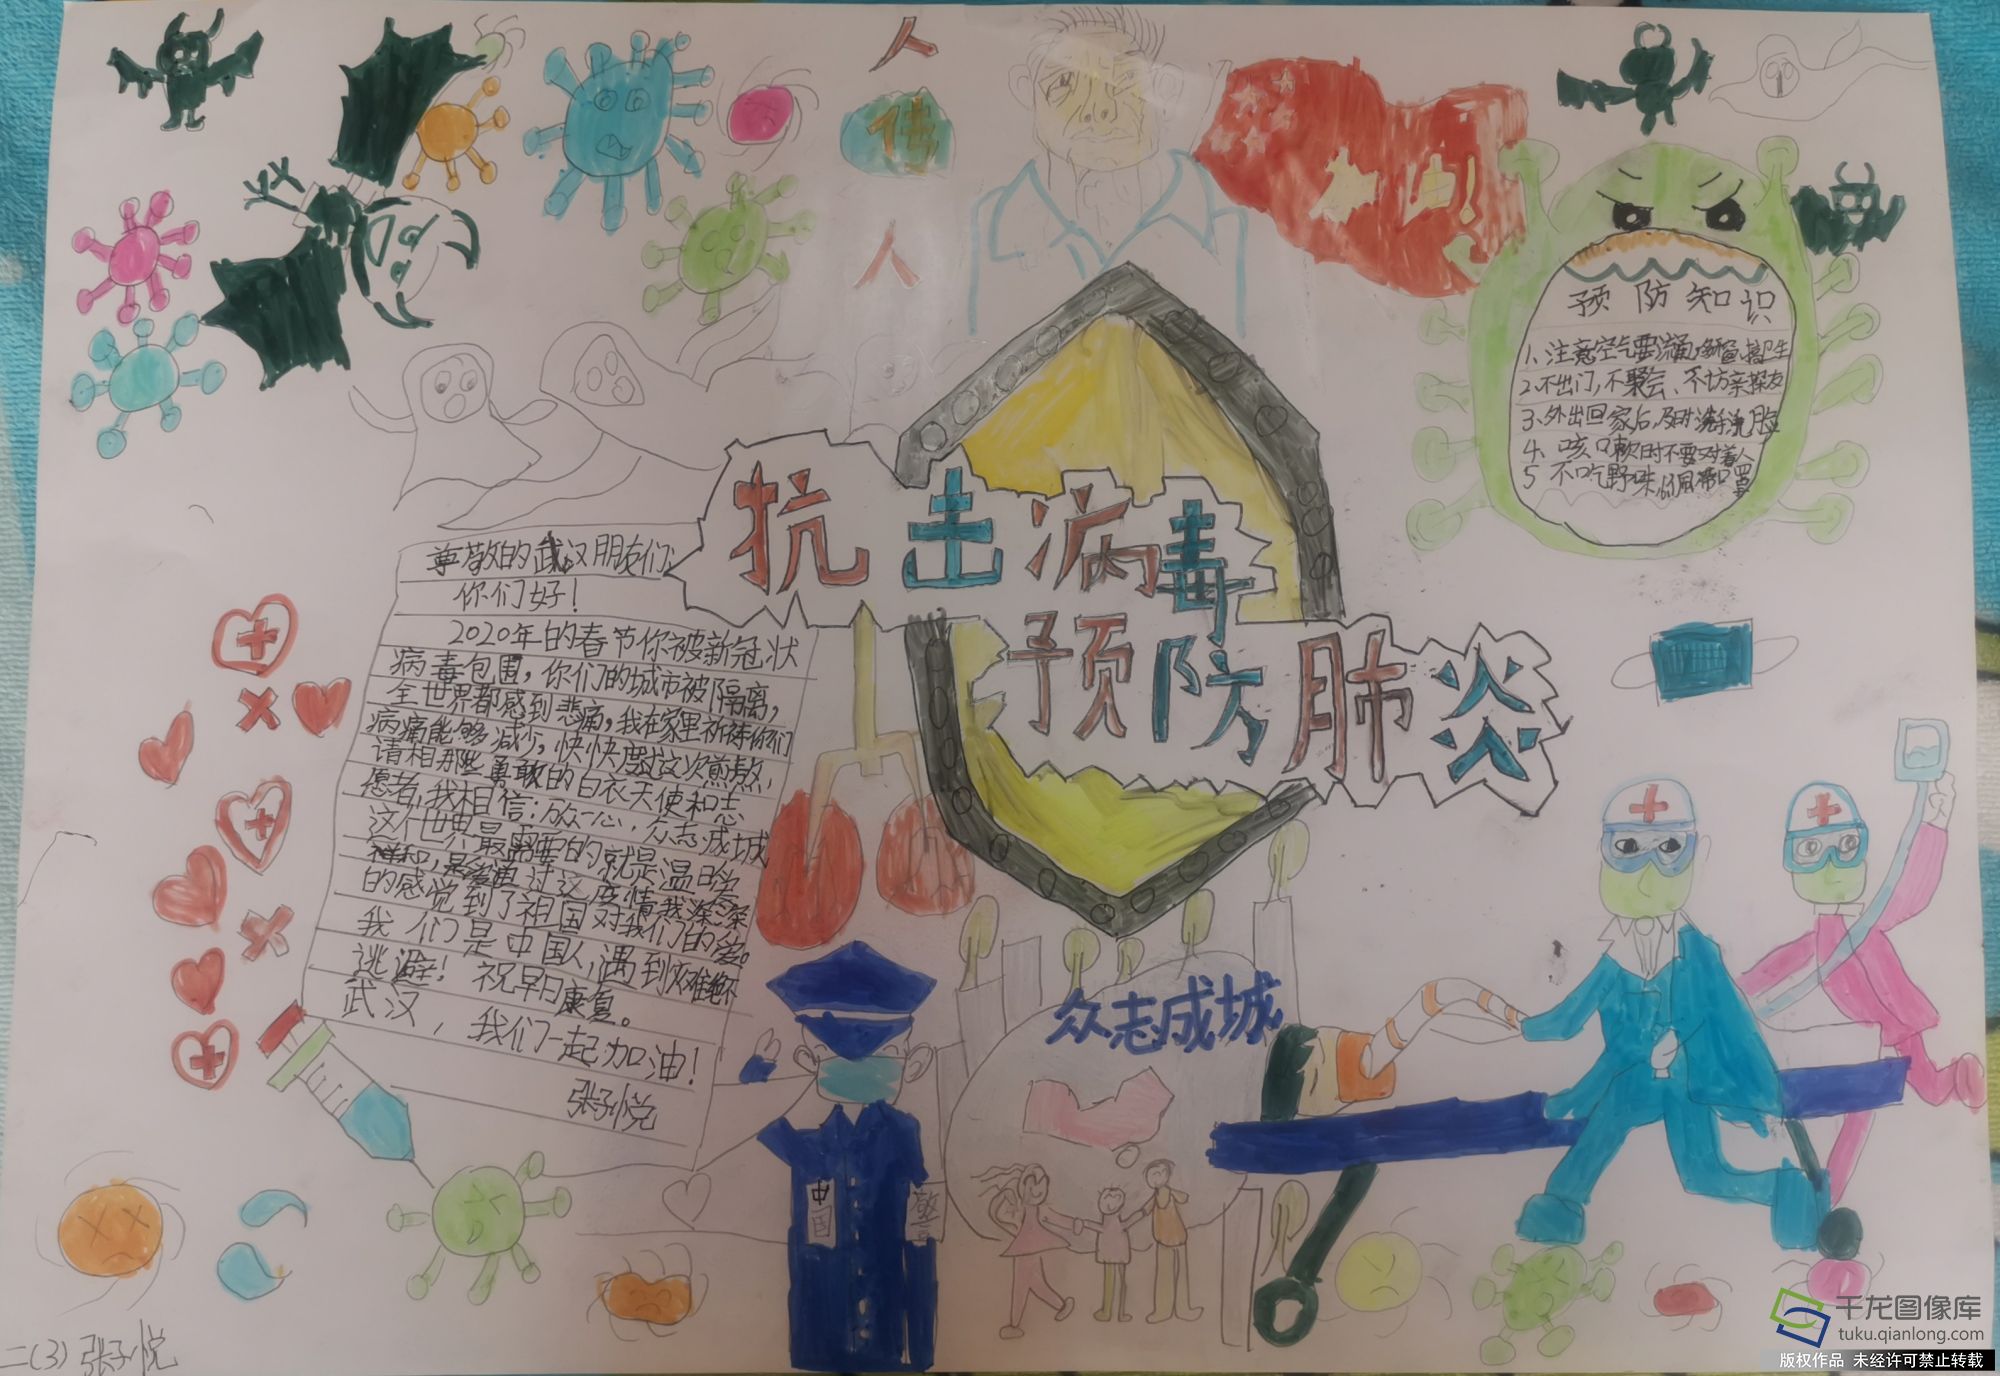 人
传
人
抗击病毒
预防肺炎
预防知识
1、注意空气要流通,
2、不出门,不聚会、不访亲探友
3、外出回家后,及时洗手洗脸
4、咳嗽时不要对着人
5 不吃野味,
尊敬的武汉朋友们:
你们好!
2020年的春节你被新冠状
病毒包围,你们的城市被隔离,
全世界都感到悲痛,我在家里祈祷你们
病痛能够减少,快快度过这次煎熬,
请相那些勇敢的白衣天使和志
愿者,我相信:众一心,众志成城
这个世界最需要的就是温暖
祥和,过这疫情我深深
的感觉到了祖国对我们的爱。
我们是中国人,遇到灾难绝不
逃避!祝早日康复。
武汉,我们一起加油!
张子悦
众志成城
中国
警
二(3)张子悦
千龙图像库
tuku.qianlong.com
版权作品 未经许可禁止转载